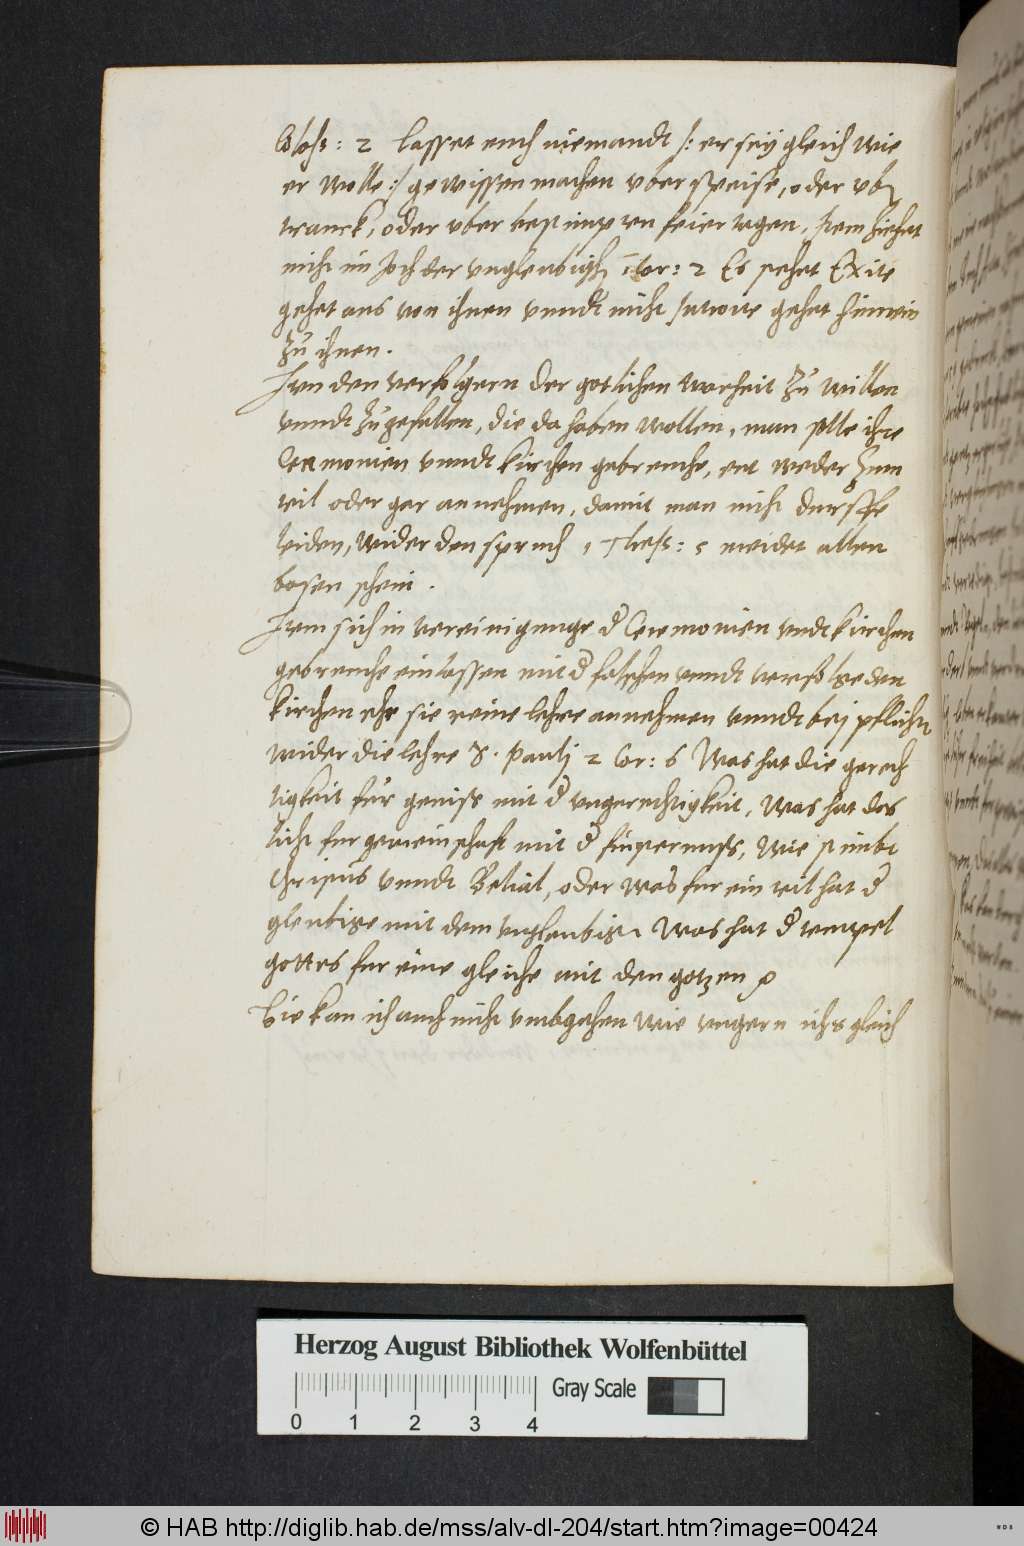 Coloss: 2 lasset euch niemandt /: er seÿ gleich wie
er wolle :/ gewissen machen vber speise, oder vber
tranck, oder vber bestimpten feiertagen, Item ziehet
nicht im Joch der vnglenbigen Cor: 2 Es stehet Exite
gehet aus von ihnen vnndt nicht Introite gehet hinnein
zu ihnen.
Item den verfolgern der gotlichen warheit zu willen
vnndt zugefallen, die da haben wollen, man solle ihre
Ceremonien vnndt kirchen gebreuche, ent weder zum
teil oder gar annehmen, damit man nicht durffe
leiden, wider den spruch 1 Thess: 5 meidet allen
bosen schein.
Item sich in vereinigunge d Ceremonien vndt kirchen
gebreuche einlassen mit d falschen vnndt
kirchen ehe sie reine lehre annehmen vnndt beÿ pflichten
wider die lehre S. Paulj 2 Cor: 6 Was hat die gerech
tigkeit fur geniss mit d vngerechtigkeit, Was hat das
licht fur gemeinschaft mit d finsternuss, Wie stimbt
Christus vnndt Belial, oder was fur ein teil hat d
gleubige mit dem vngleubigen Was hat d tempel
gottes fur eine gleiche mit den gotzen
Hie kan ich auch nicht vmbgehen wie vngern ichs gleich
Herzog August Bibliothek Wolfenbüttel
Gray Scale
0 1 2 3 4
© HAB http://diglib.hab.de/mss/alv-dl-204/start.htm?image=00424